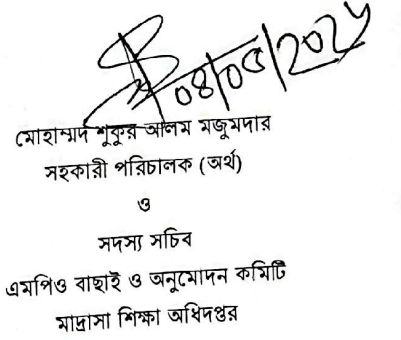 ০৪/০৫/২০২৫
মোহাম্মদ শুকুর আলম মজুমদার
সহকারী পরিচালক (অর্থ)
ও
সদস্য সচিব
এমপিও বাছাই ও অনুমোদন কমিটি
মাদ্রাসা শিক্ষা অধিদপ্তর